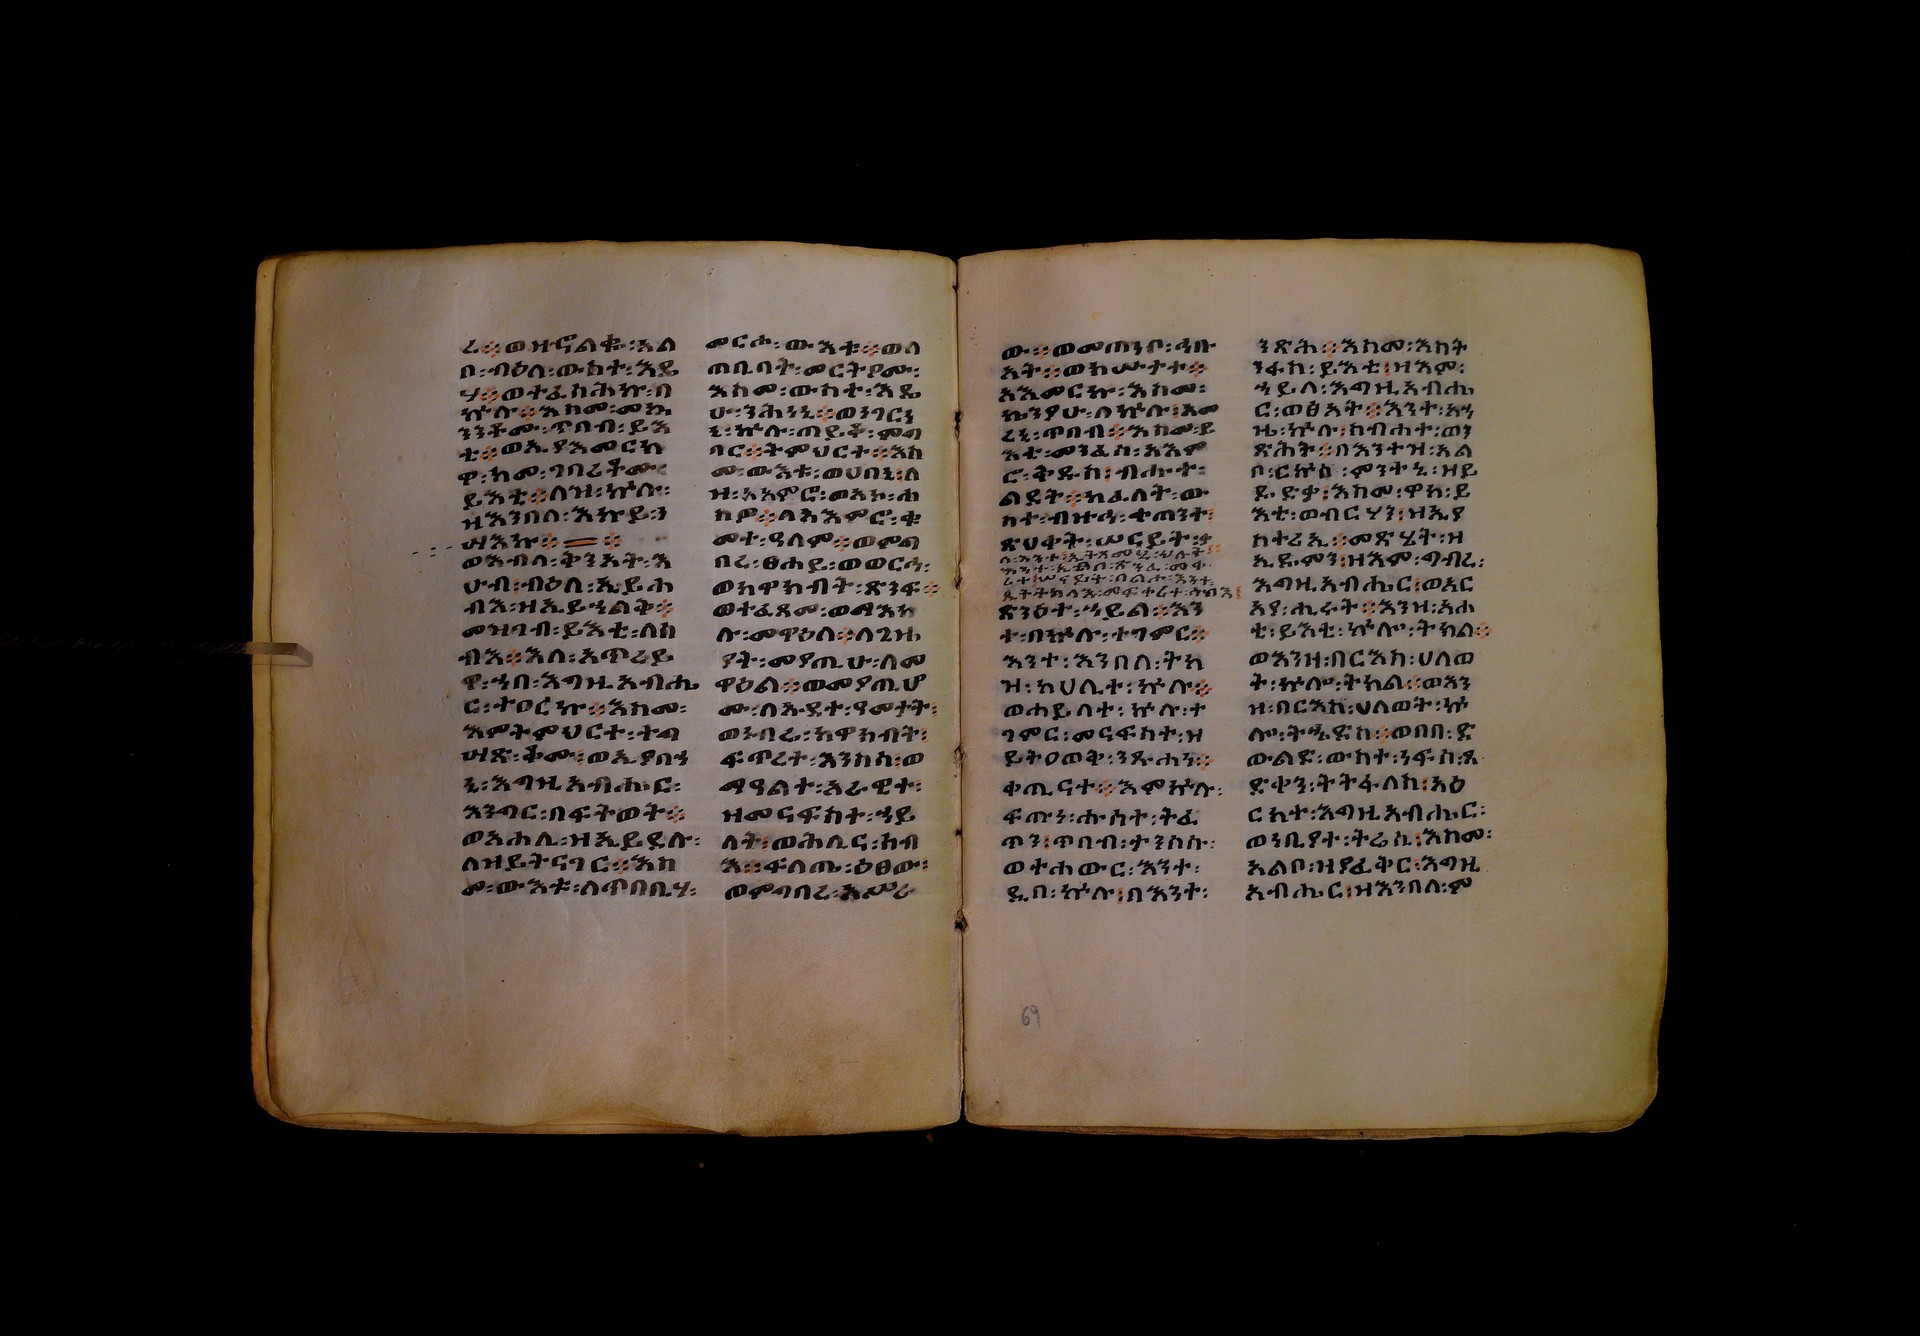 ሪ፨ወዝኖልቁ፡አል
ቦ፡ብዕለ፡ውስተ፡እዴ
ሃ፨ወተፈስሕኩ፡በ
ኵሉ፨እስመ፡መኰ
ንንቶሙ፡ጥበብ፡ይእ
ቲ፨ወኢያእመርኩ
ዋ፡ከመ፡ገባሪቶሙ
ይእቲ፨ለዝ፡ኵሉ፡
ዘእንበለ፡እኩይ፡ን
ሣእኩ፨
ወእብለ፡ቅንአት፡እ
ሁብ፡ብዕለ፡ኢይሐ
ብእ፡ዘኢይኀልቅ፨
መዝገብ፡ይእቲ፡ለሰ
ብእ፨እለ፡አጥረይ
ዋ፡ኀበ፡እግዚአብሔ
ር፡ተዐርኩ፨እስመ፡
እምትምህርት፡ተባ
ሣጽ፡ቅሙ፡ወኢያበኀ
ኒ፡እግዚአብሔር፡
እንግር፡በፍትወት፨
ወአሐሊ፡ዘኢይደሉ፡
ለዝይትናገር፨እስ
መ፡ውእቱ፡ለጥበቢሃ፡
መርሑ፡ውእቱ፨ወለ
ጠቢባት፡መርትዖሙ፡
እስመ፡ውስተ፡እዴ
ሁ፡ንሕነኒ፨ወነገርነ
ኒ፡ኵሉ፡ጠይቆ፡ምግ
ባር፨ትምህርት፨እስ
መ፡ውእቱ፡ወሀበኒ፡ለ
ዝ፡አእምሮ፡ወአኮ፡ሐ
ሰዎ፨ለአእምሮ፡ቁ
መተ፡ዓለም፨ወምግ
በሪ፡ፀሐይ፡ወወርኅ፡
ወከዋክብት፡ጽንፍ፨
ወተፈጸመ፡ወማእከ
ሉ፡መዋዕለ፨ለጊዜ
ያት፡መያጢሁ፡ለመ
ዋዕል፨ወመያጢሆ
ሙ፡ለእደተ፡ዓመታት፡
ወነበራ፡ከዋክብት፡
ፍጥረተ፡እንስሳ፡ወ
ማዓልተ፡አራዊተ፡
ዘመናፍስተ፡ኀይ
ለት፡ወሕሊና፡ሰብ
እ፨ፍለጤ፡ዕፀው፡
ወምግባረ፡አሥራ
ው፨ወመጠነቦ፡ኅቡ
አት፨ወክሡተተ፨
አእመርኩ፡እስመ፡
ኬንያሁ፡ለኵሉ፡አመ
ረኒ፡ጥበብ፨እስመ፡ይ
እቲ፡መንፈስ፡አእም
ር፡ቅዱስ፡ብሑተ፡
ልደት፨ክፈለት፡ው
ስተ፡ብዙኅ፡ቀጠንት፡
ጽህቅት፡ሠናይት፡ቃ
ጽንዕት፡ኀይል፨እን
ተ፡በኵሉ፡ተገምር፨
እንተ፡እንበለ፡ትካ
ዝ፡ከሀሊተ፡ኵሉ፨
ወሐይለተ፡ኵሉ፡ተ
ገምር፡መናፍስተ፡ዝ
ይትዐወቅ፡ንጹሐን፨
ቀጢናተ፨እምኵሉ፡
ፍጡነ፡ሑሰት፡ትፈ
ጥን፡ጥበብ፡ታንሶሱ፡
ወተሐውር፡እንተ፡
ዲበ፡ኵሉ፡በእንተ፡
ንጽሕ፨እስመ፡እስት
ንፋስ፡ይእቲ፡ዘእም፡
ኀይለ፡እግዚአብሔ
ር፡ወፀአት፨እንተ፡አኀ
ዜ፡ኵሉ፡ስብሐተ፡ወን
ጽሕት፨በእንተዝ፡አል
ቦ፡ርኩስ፡ምንተኒ፡ዘይ
ዴድቃ፡እስመ፡ዋካ፡ይ
እቲ፡ወብርሃን፡ዘኢያ
ስተሪኢ፨መጽሄት፡ዘ
አዴምን፡ዘእም፡ግብረ፡
እግዚአብሔር፡ወአር
አያ፡ሒሩት፨እንዘ፡አሐ
ቲ፡ይእቲ፡ኵሎ፡ትክል፨
ወእንዘ፡በርእስ፡ሀለወ
ት፡ኵሎ፡ትክል፨ወእን
ዘ፡በርእሰ፡ሀለወት፡ኵ
ሎ፡ትሔድስ፨ወበበ፡ድ
ውልድ፡ውስተ፡ነፍሰ፡ጻ
ድቀን፡ትትፋለስ፡አዕ
ርክተ፡እግዚአብሔር፡
ወነቢያተ፡ትሬሲ፡እስመ፡
አልቦ፡ዘያፈቅር፡እግዚ
አብሔር፡ዘእንበለ፡ም
69